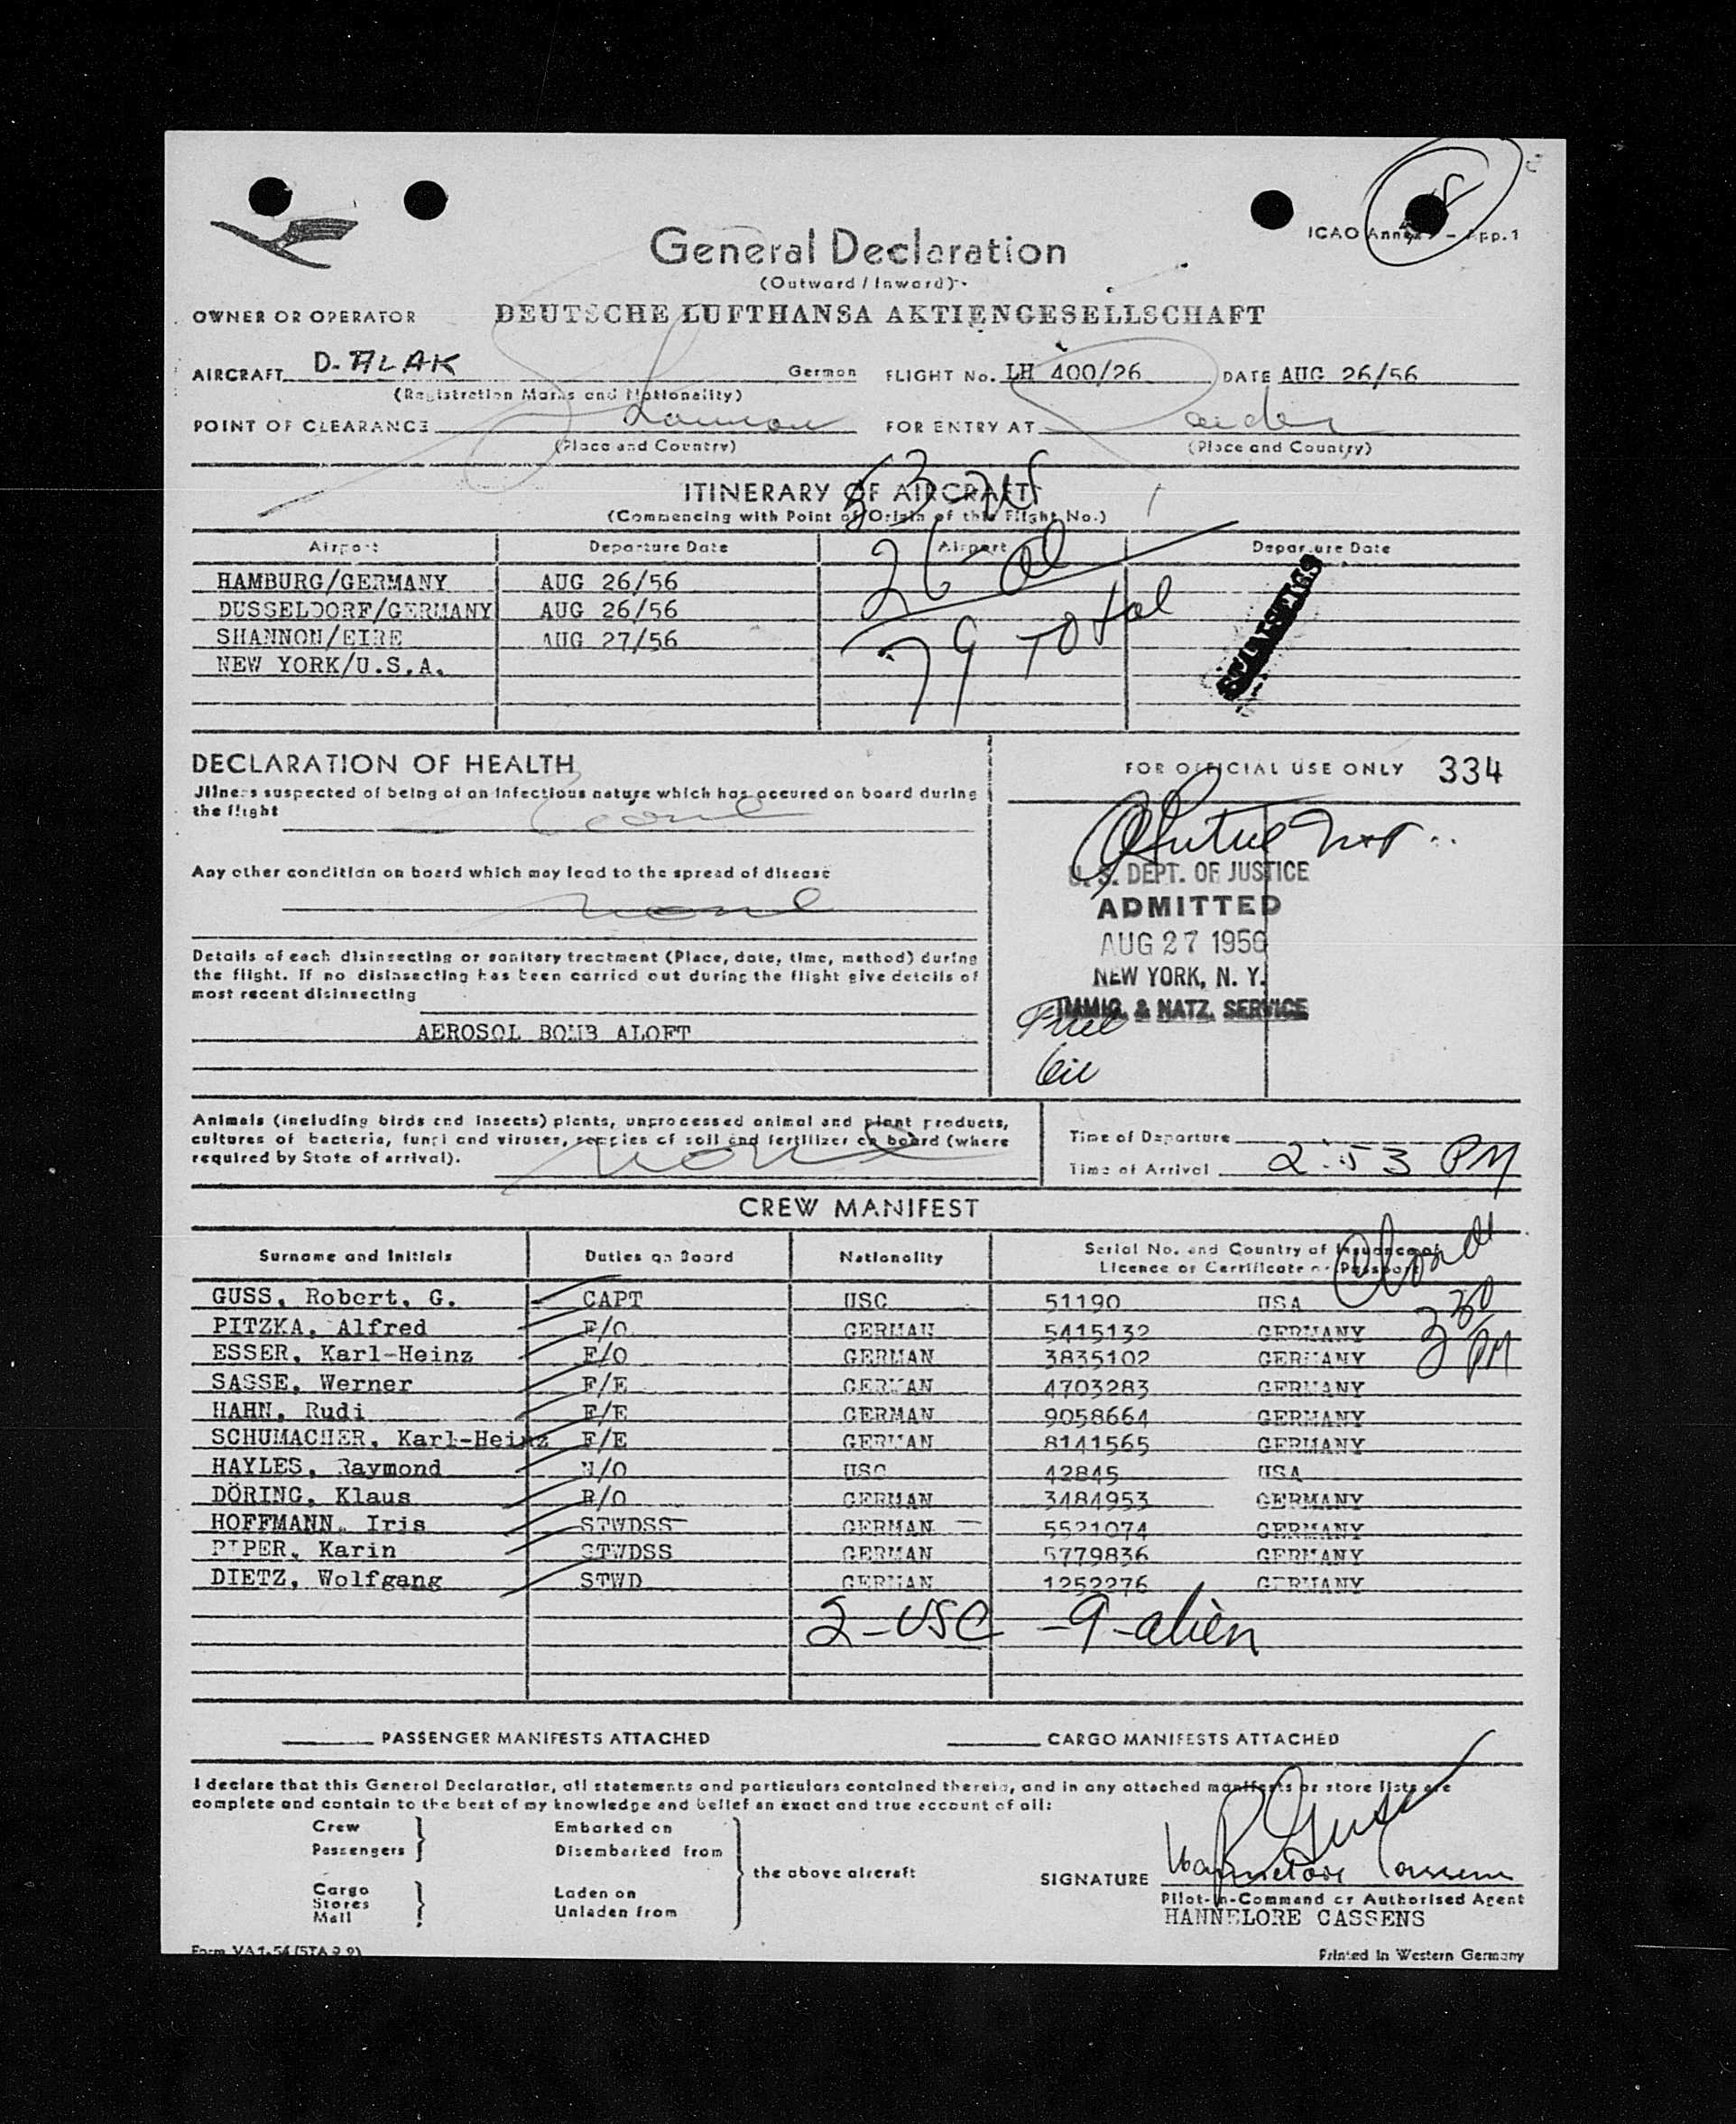 General Declaration
ICAO Annex 9 - App.1
(Outward / Inward)
OWNER OR OPERATOR DEUTSCHE LUFTHANSA AKTIENGESELLSCHAFT
AIRCRAFT D-ALAK German FLIGHT No. LH 400/26 DATE AUG 26/56
(Registration Marks and Nationality)
POINT OF CLEARANCE Shannon FOR ENTRY AT
(Place and Country) (Place and Country)
53
ITINERARY OF AIRCRAFT
(Commencing with Point of Origin of this Flight No.)
Airport Departure Date Airport Departure Date
26
HAMBURG/GERMANY AUG 26/56
DUSSELDORF/GERMANY AUG 26/56
SHANNON/EIRE AUG 27/56
79 Total
NEW YORK/U.S.A.
DECLARATION OF HEALTH
FOR OFFICIAL USE ONLY 334
Jllness suspected of being of an infectious nature which has occured on board during
the flight
none
Any other condition on board which may lead to the spread of disease
none
U. S. DEPT. OF JUSTICE
ADMITTED
AUG 27 1956
NEW YORK, N. Y.
IMMIG. & NATZ. SERVICE
Details of each disinsecting or sanitary treatment (Place, date, time, method) during
the flight. If no disinsecting has been carried out during the flight give details of
most recent disinsecting
AEROSOL BOMB ALOFT
Animals (including birds and insects) plants, unprocessed animal and plant products,
cultures of bacteria, fungi and viruses, samples of soil and fertilizer on board (where
required by State of arrival).
none
Time of Departure
Time of Arrival 2:53 PM
CREW MANIFEST
Surname and Initials Duties on Board Nationality Serial No. and Country of Issuance of
Licence or Certificate or Passport
GUSS, Robert. G. CAPT USC 51190 USA
PITZKA, Alfred F/O GERMAN 5415132 GERMANY
330 PM
ESSER, Karl-Heinz F/O GERMAN 3835102 GERMANY
SASSE, Werner F/E GERMAN 4703283 GERMANY
HAHN, Rudi F/E GERMAN 9058664 GERMANY
SCHUMACHER, Karl-Heinz F/E GERMAN 8141565 GERMANY
HAYLES, Raymond N/O USC 42845 USA
DÖRING, Klaus R/O GERMAN 3484953 GERMANY
HOFFMANN, Iris STWDSS GERMAN 5521074 GERMANY
PIPER, Karin STWDSS GERMAN 5779836 GERMANY
DIETZ, Wolfgang STWD GERMAN 1252276 GERMANY
2-USC -9-alien
PASSENGER MANIFESTS ATTACHED CARGO MANIFESTS ATTACHED
I declare that this General Declaration, all statements and particulars contained therein, and in any attached manifests or store lists are
complete and contain to the best of my knowledge and belief an exact and true account of all:
Crew
Passengers
Cargo
Stores
Mail
Embarked on
Disembarked from
Laden on
Unladen from
the above aircraft
SIGNATURE Hannelore Cassens
Pilot-in-Command or Authorised Agent
HANNELORE CASSENS
Form VA 1-56 (STA 9.9)
Printed in Western Germany